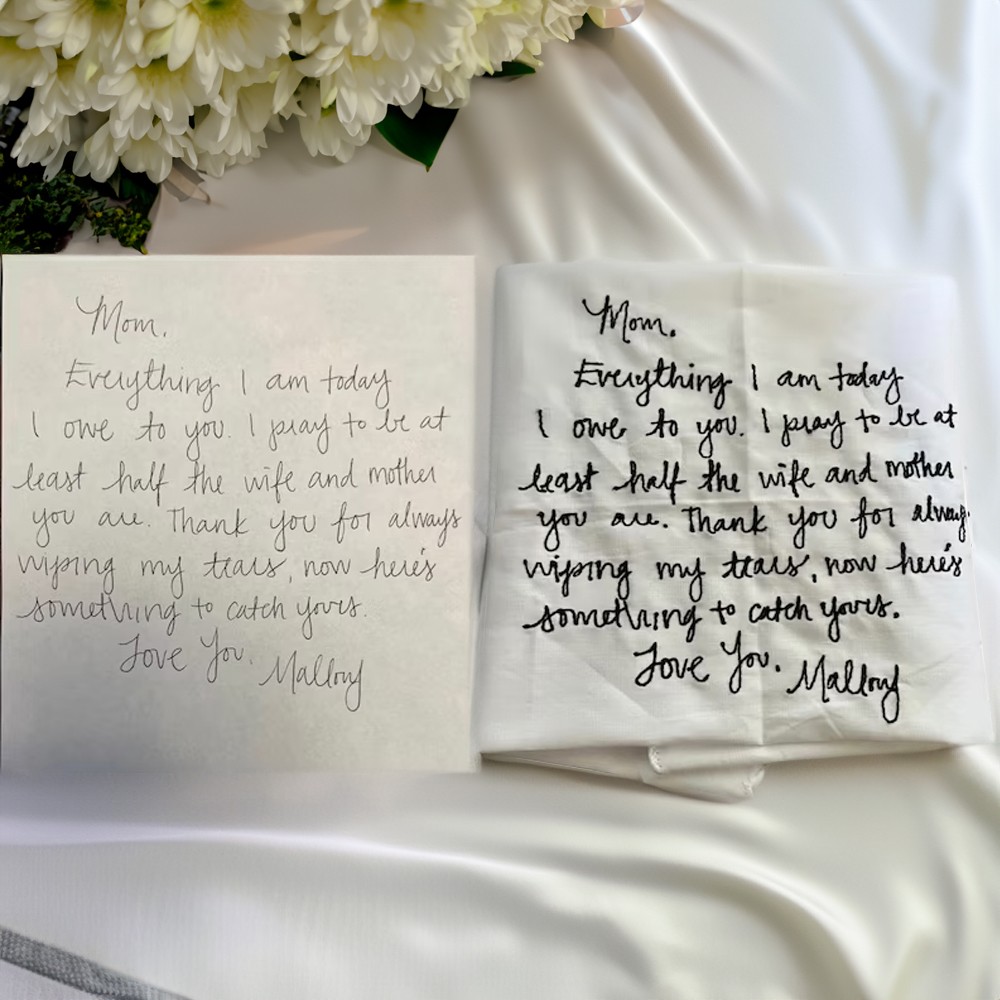 Mom,
Everything I am today
I owe to you. I pray to be at
least half the wife and mother
you are. Thank you for always
wiping my tears, now here's
something to catch yours.
Love You,
Mallory
Mom,
Everything I am today
I owe to you. I pray to be at
least half the wife and mother
you are. Thank you for always
wiping my tears, now here's
something to catch yours.
Love You,
Mallory